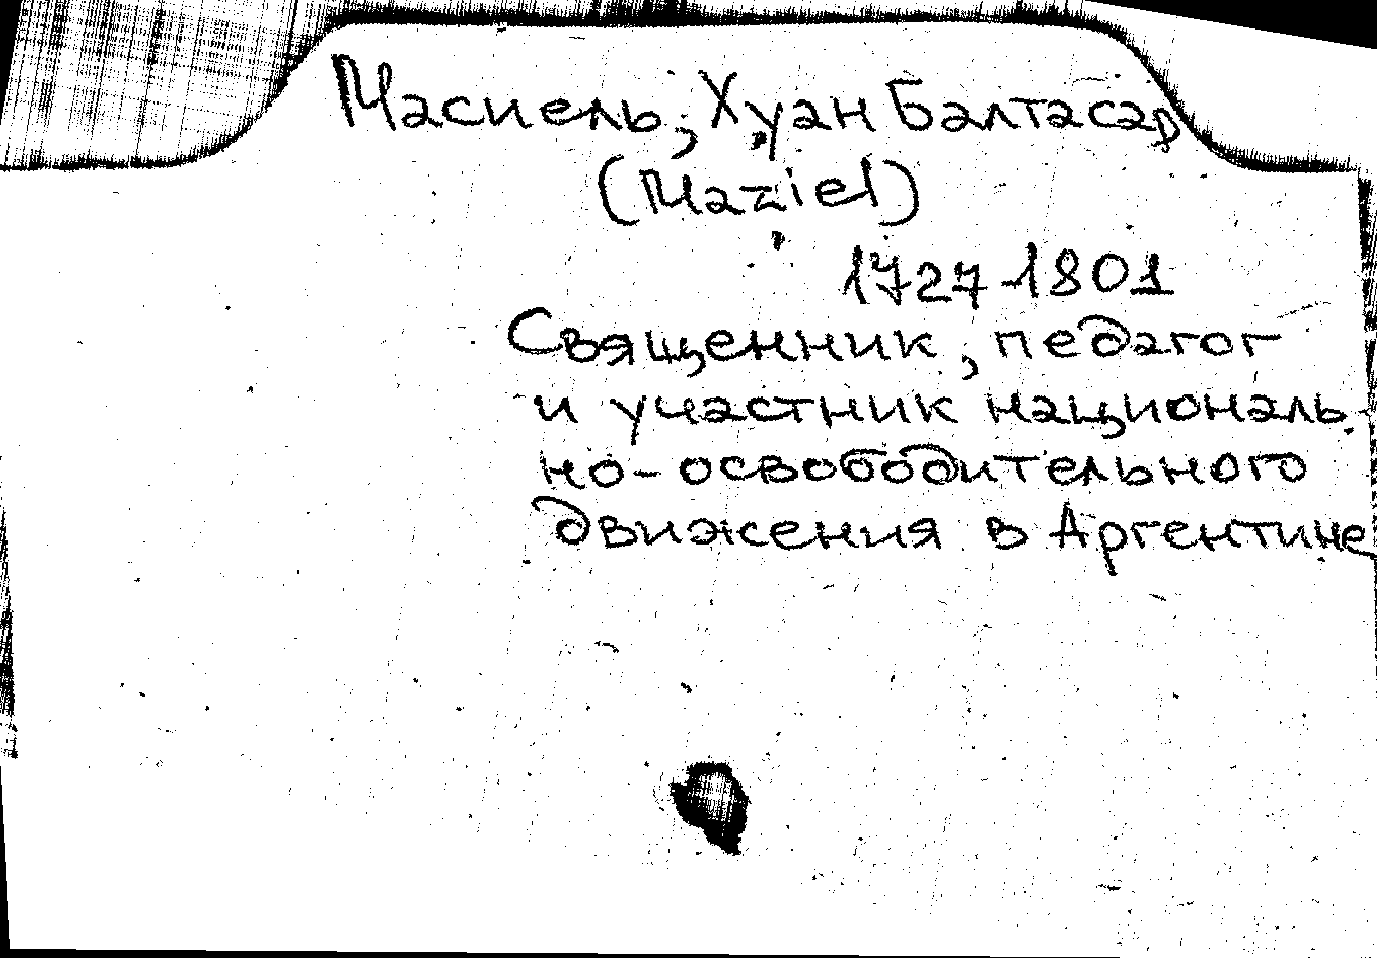 Масиель, Хуан Балтасар
(Maziel)
1727-1801
Священник, педагог
и участник националь-
но-освободительного
движения в Аргентине